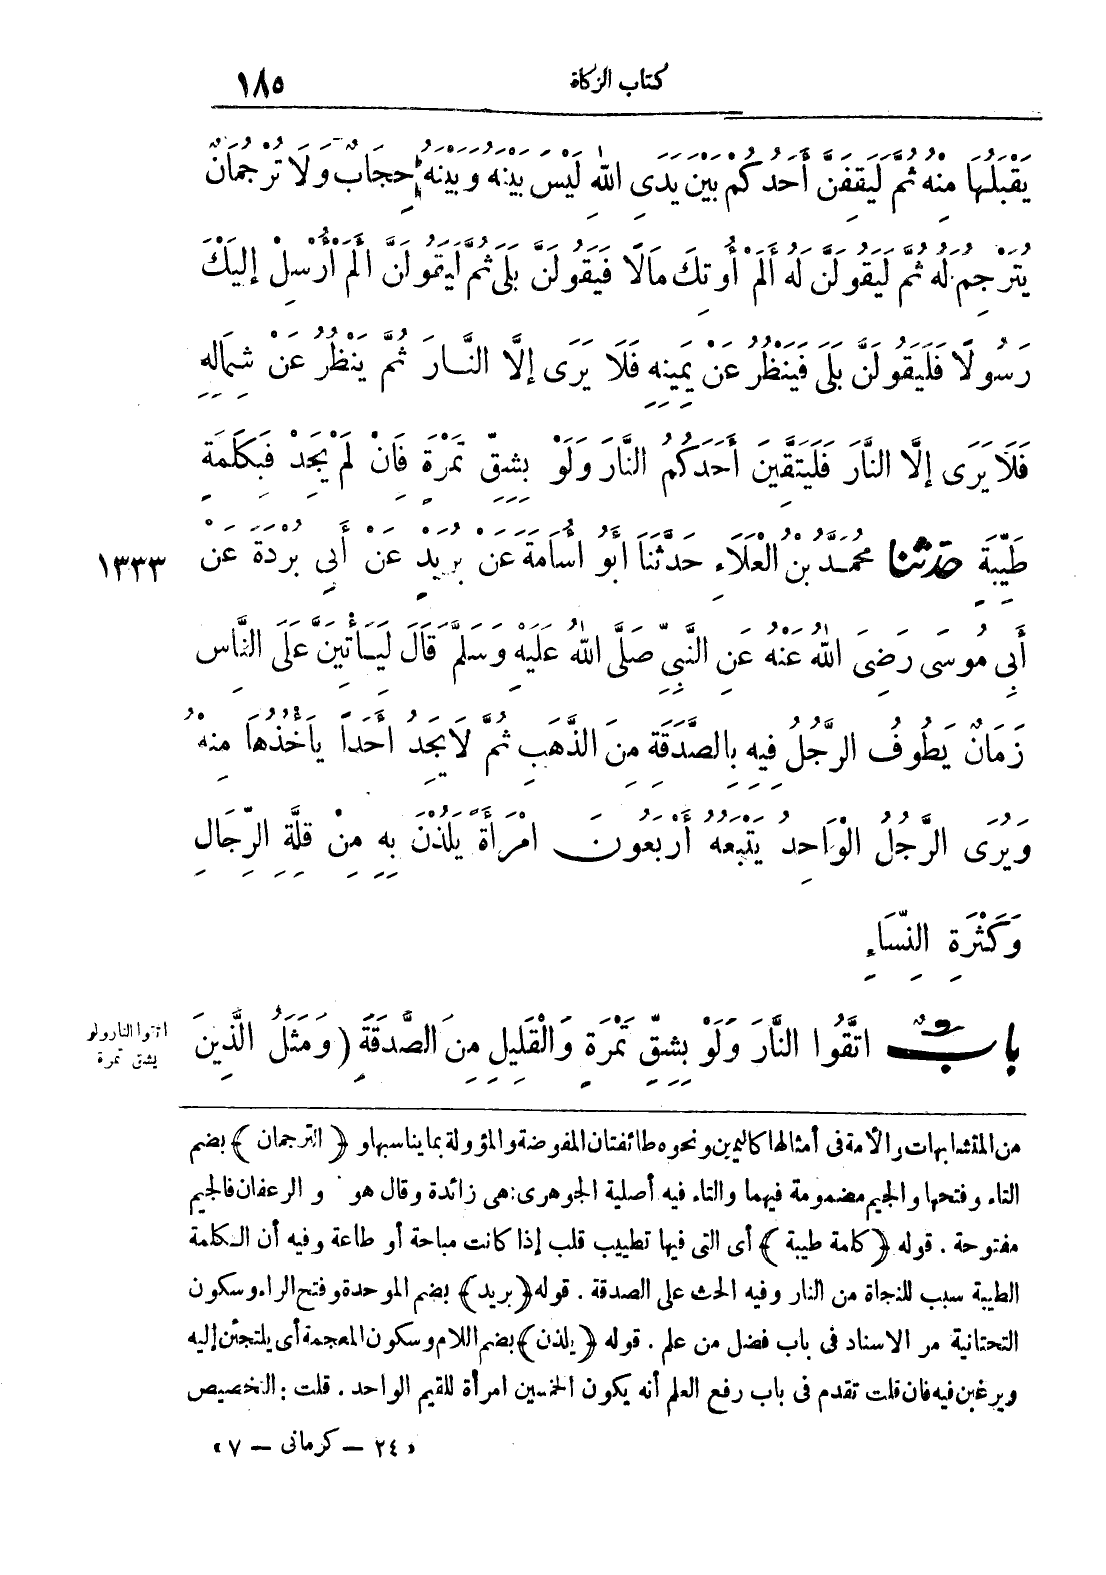 كتاب الزكاة ١٨٥
يَقْبَلُهَا مِنْهُ ثُمَّ لَيَقِفَنَّ أَحَدُكُمْ بَيْنَ يَدَىِ اللهِ لَيْسَ بَيْنَهُ وَبَيْنَهُ حِجَابٌ وَلَا تَرْجُمَانٌ
يُتَرْجِمُ لَهُ ثُمَّ لَيَقُولَنَّ لَهُ أَلَمْ أُوتِكَ مَالًا فَيَقُولَنَّ بَلَى ثُمَّ لَيَقُولَنَّ أَلَمْ أُرْسِلْ إِلَيْكَ
رَسُولًا فَلَيَقُولَنَّ بَلَى فَيَنْظُرُ عَنْ يَمِينِهِ فَلَا يَرَى إِلَّا النَّارَ ثُمَّ يَنْظُرُ عَنْ شِمَالِهِ
فَلَا يَرَى إِلَّا النَّارَ فَلَيَتَّقِيَنَّ أَحَدُكُمُ النَّارَ وَلَوْ بِشِقِّ تَمْرَةٍ فَانْ لَمْ يَجِدْ فَبِكَلِمَةٍ
طَيِّبَةٍ حَدَّثَنَا مُحَمَّدُ بْنُ الْعَلَاءِ حَدَّثَنَا أَبُو أُسَامَةَ عَنْ بُرَيْدٍ عَنْ أَبِى بُرْدَةَ عَنْ ١٣٣٣
أَبِى مُوسَى رَضِىَ اللهُ عَنْهُ عَنِ النَّبِيِّ صَلَّى اللهُ عَلَيْهِ وَسَلَّمَ قَالَ لَيَأْتِيَنَّ عَلَى النَّاسِ
زَمَانٌ يَطُوفُ الرَّجُلُ فِيهِ بِالصَّدَقَةِ مِنَ الذَّهَبِ ثُمَّ لَا يَجِدُ أَحَدًا يَأْخُذُهَا مِنْهُ
وَيُرَى الرَّجُلُ الْوَاحِدُ يَتْبَعُهُ أَرْبَعُونَ امْرَأَةً يَلُذْنَ بِهِ مِنْ قِلَّةِ الرِّجَالِ
وَكَثْرَةِ النِّسَاءِ
بابٌ اتَّقُوا النَّارَ وَلَوْ بِشِقِّ تَمْرَةٍ وَالْقَلِيلِ مِنَ الصَّدَقَةِ (وَمَثَلُ الَّذِينَ
اتقوا النار ولو
بشق تمرة
من المتشابهات والأمة فى أمثالها كاليمين ونحوه طائفتان المفوضة والمؤولة بما يناسبها و ﴿الترجمان﴾ بضم
التاء وفتحها والجيم مضمومة فيهما والتاء فيه أصلية الجوهرى: هى زائدة وقال هو و الزعفران فالجيم
مفتوحة . قوله ﴿كلمة طيبة﴾ أى التى فيها تطييب قلب إذا كانت مباحة أو طاعة وفيه أن الكلمة
الطيبة سبب للنجاة من النار وفيه الحث على الصدقة . قوله ﴿بريد﴾ بضم الموحدة وفتح الراء وسكون
التحتانية مر الاسناد فى باب فضل من علم . قوله ﴿يلذن﴾ بضم اللام وسكون المعجمة أى يلتجئن إليه
ويرغبن فيه فان قلت تقدم فى باب رفع العلم أنه يكون الخمسين امرأة للقيم الواحد . قلت : التخصيص
« ٢٤ – كرمانى – ٧ »